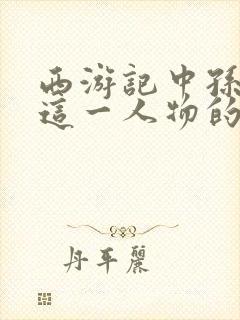 西游記中孫
這一人物的
丹平麗